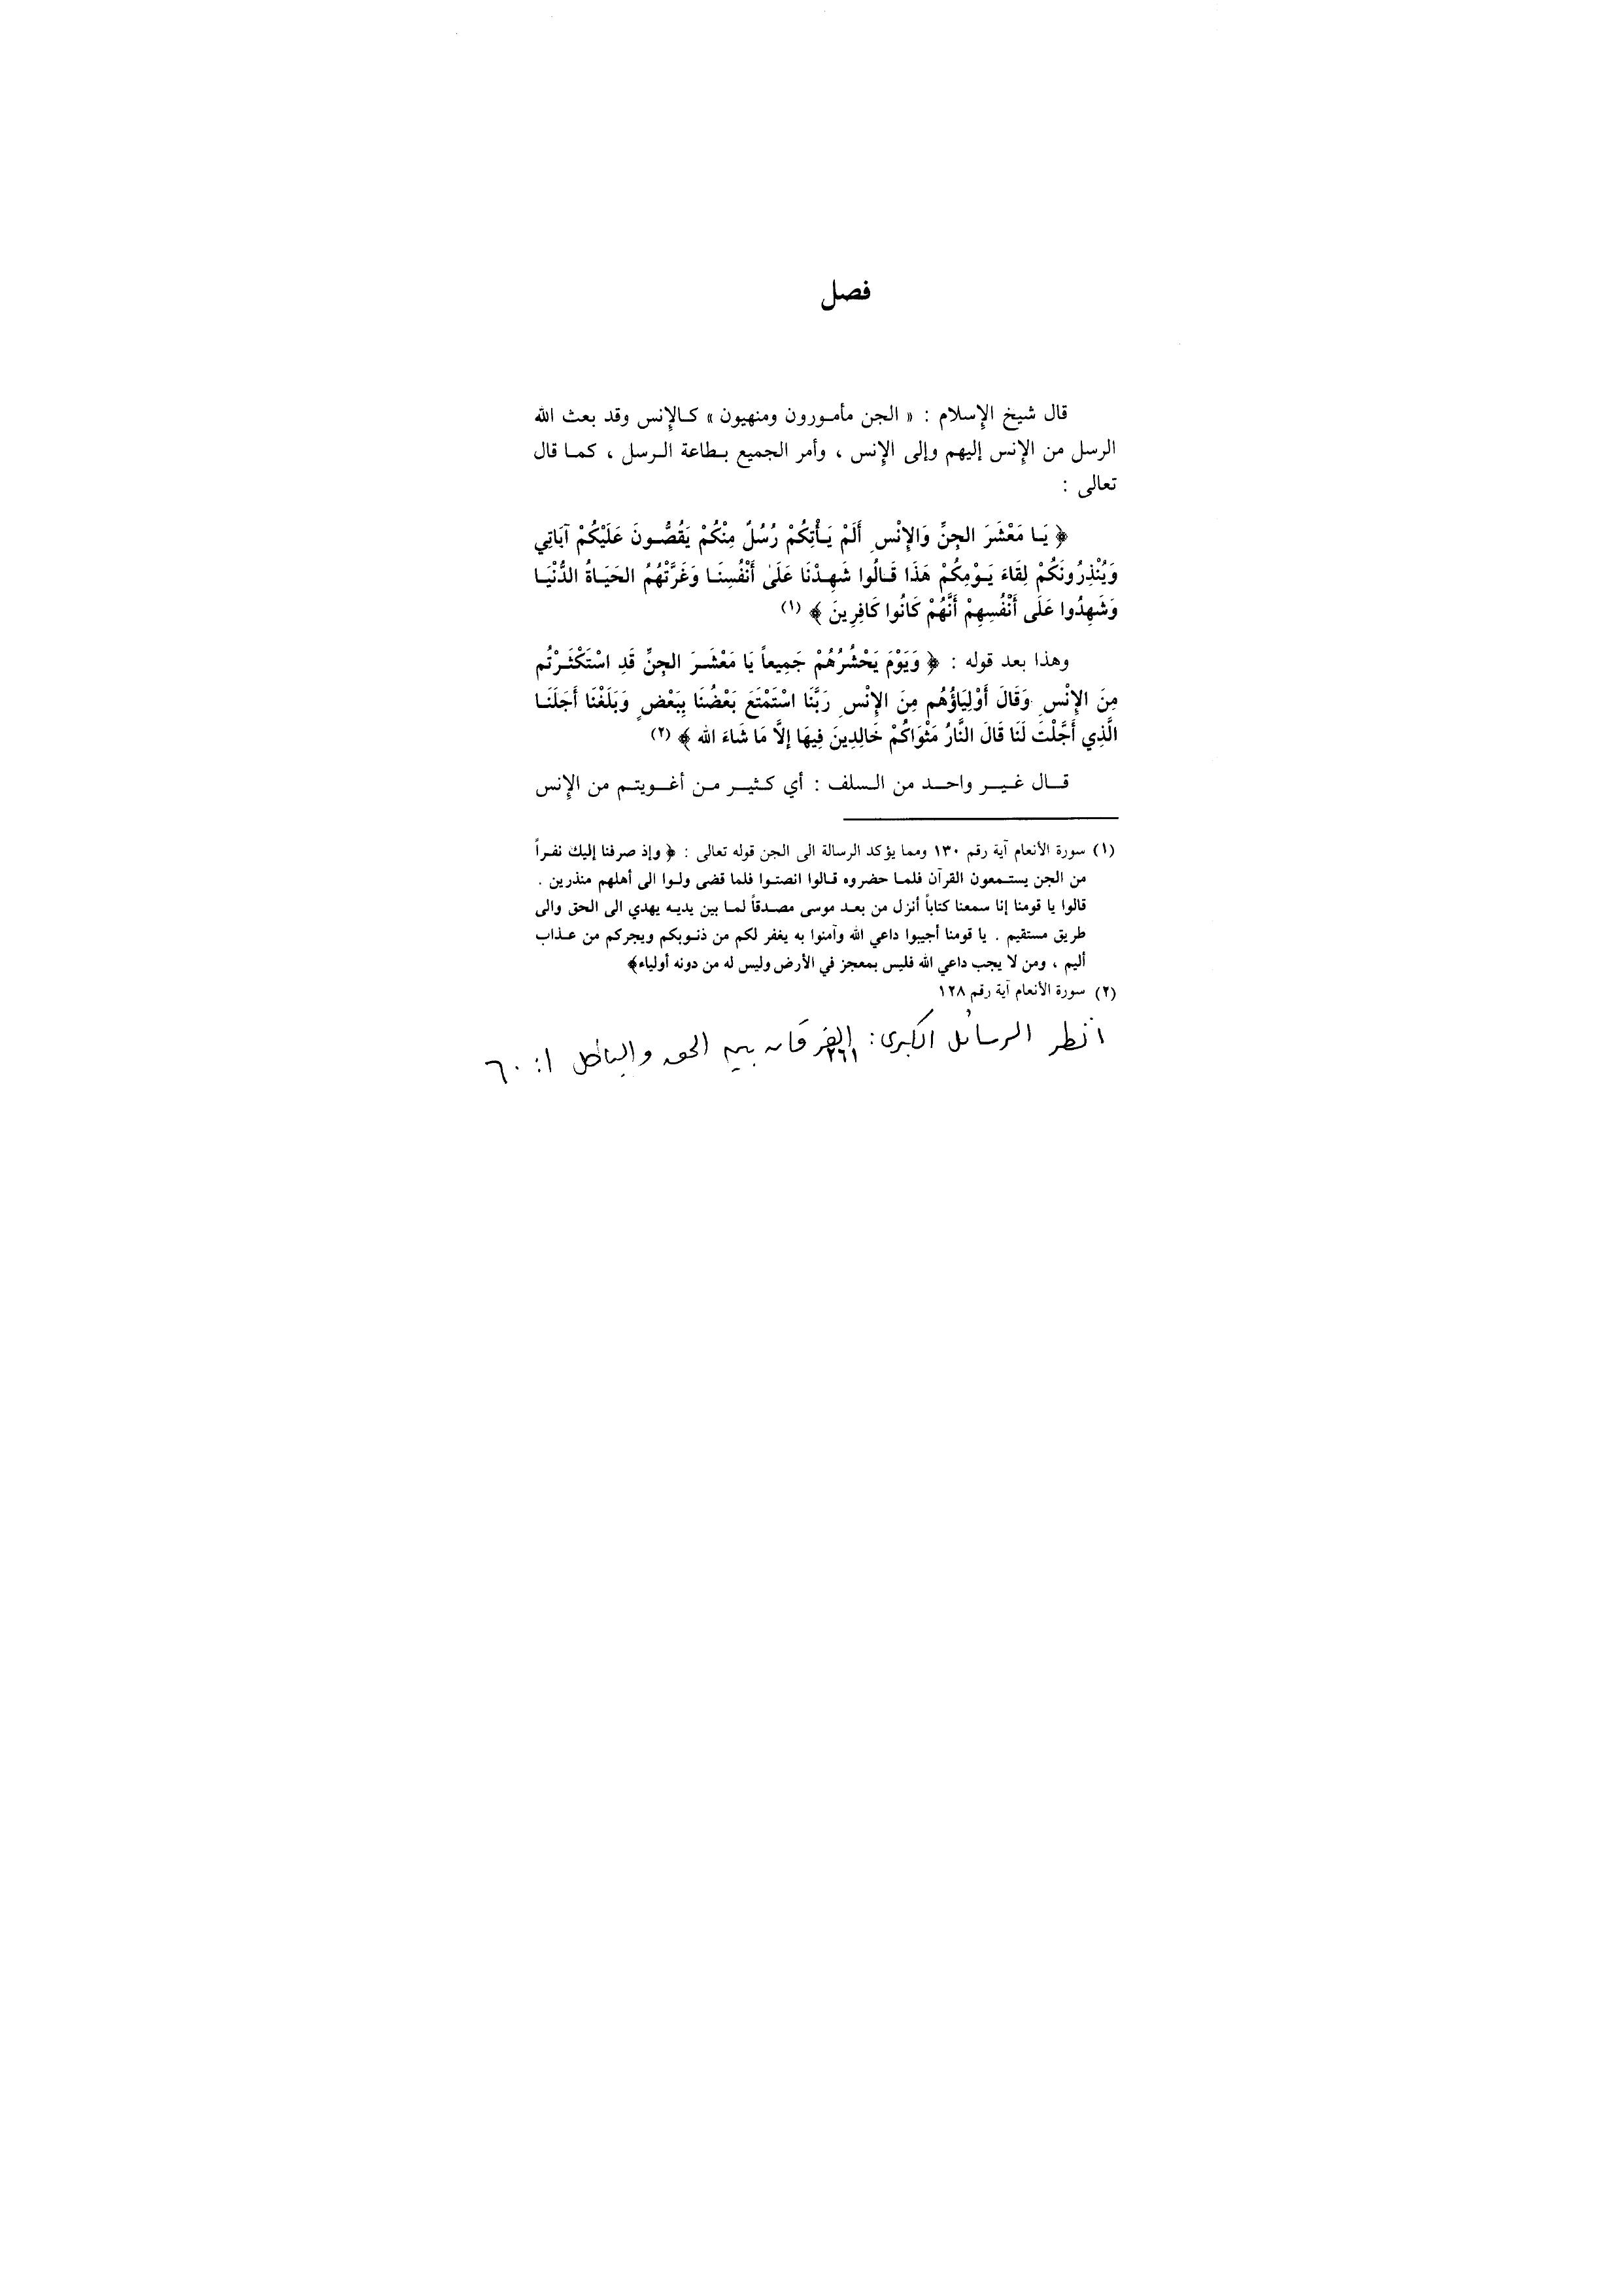 فصل
قال شيخ الإسلام : « الجن مأمورون ومنهيون » كالإنس وقد بعث الله
الرسل من الإنس إليهم وإلى الإنس ، وأمر الجميع بطاعة الرسل ، كما قال
تعالى :
﴿ يَا مَعْشَرَ الجِنِّ وَالإِنْسِ أَلَمْ يَأْتِكُمْ رُسُلٌ مِنْكُمْ يَقُصُّونَ عَلَيْكُمْ آيَاتِي
وَيُنْذِرُونَكُمْ لِقَاءَ يَوْمِكُمْ هَذَا قَالُوا شَهِدْنَا عَلَىٰ أَنْفُسِنَا وَغَرَّتْهُمُ الحَيَاةُ الدُّنْيَا
وَشَهِدُوا عَلَى أَنْفُسِهِمْ أَنَّهُمْ كَانُوا كَافِرِينَ ﴾ (١)
وهذا بعد قوله : ﴿ وَيَوْمَ يَحْشُرُهُمْ جَمِيعاً يَا مَعْشَرَ الجِنِّ قَدِ اسْتَكْثَرْتُم
مِنَ الإِنْسِ وَقَالَ أَوْلِيَاؤُهُم مِنَ الإِنْسِ رَبَّنَا اسْتَمْتَعَ بَعْضُنَا بِبَعْضٍ وَبَلَغْنَا أَجَلَنَا
الَّذِي أَجَّلْتَ لَنَا قَالَ النَّارُ مَثْوَاكُمْ خَالِدِينَ فِيهَا إلاَّ مَا شَاءَ الله ﴾ (٢)
قال غير واحد من السلف : أي كثير من أغويتم من الإنس
(١) سورة الأنعام آية رقم ١٣٠ ومما يؤكد الرسالة الى الجن قوله تعالى : ﴿ وإذ صرفنا إليك نفراً
من الجن يستمعون القرآن فلما حضروه قالوا انصتوا فلما قضى ولوا الى أهلهم منذرين .
قالوا يا قومنا إنا سمعنا كتاباً أنزل من بعد موسى مصدقاً لما بين يديه يهدي الى الحق والى
طريق مستقيم . يا قومنا أجيبوا داعي الله وآمنوا به يغفر لكم من ذنوبكم ويجركم من عذاب
أليم ، ومن لا يجب داعي الله فليس بمعجز في الأرض وليس له من دونه أولياء﴾
(٢) سورة الأنعام آية رقم ١٢٨
انظر الرسائل الكبرى: الفرقان بين الحق والباطل ١: ٦٠
٢٦١